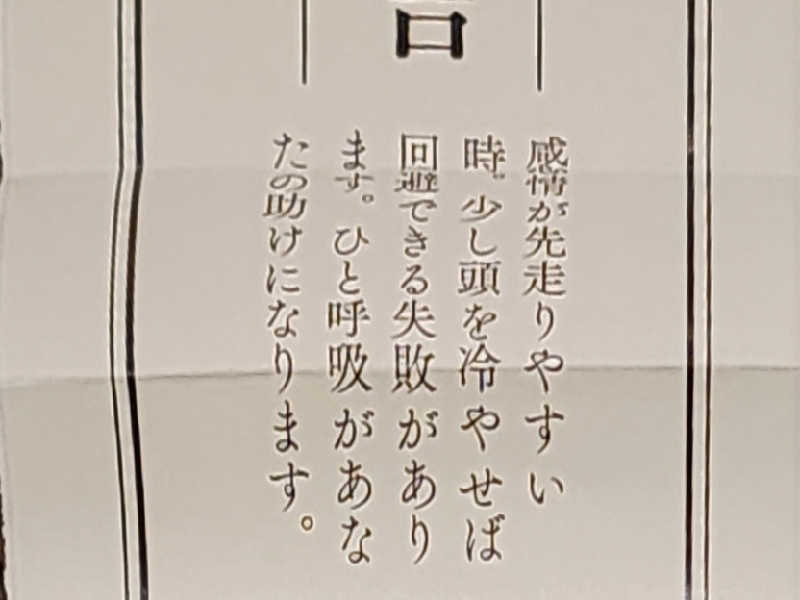 感情が先走りやすい
時。少し頭を冷やせば
回避できる失敗があり
ます。ひと呼吸があな
たの助けになります。